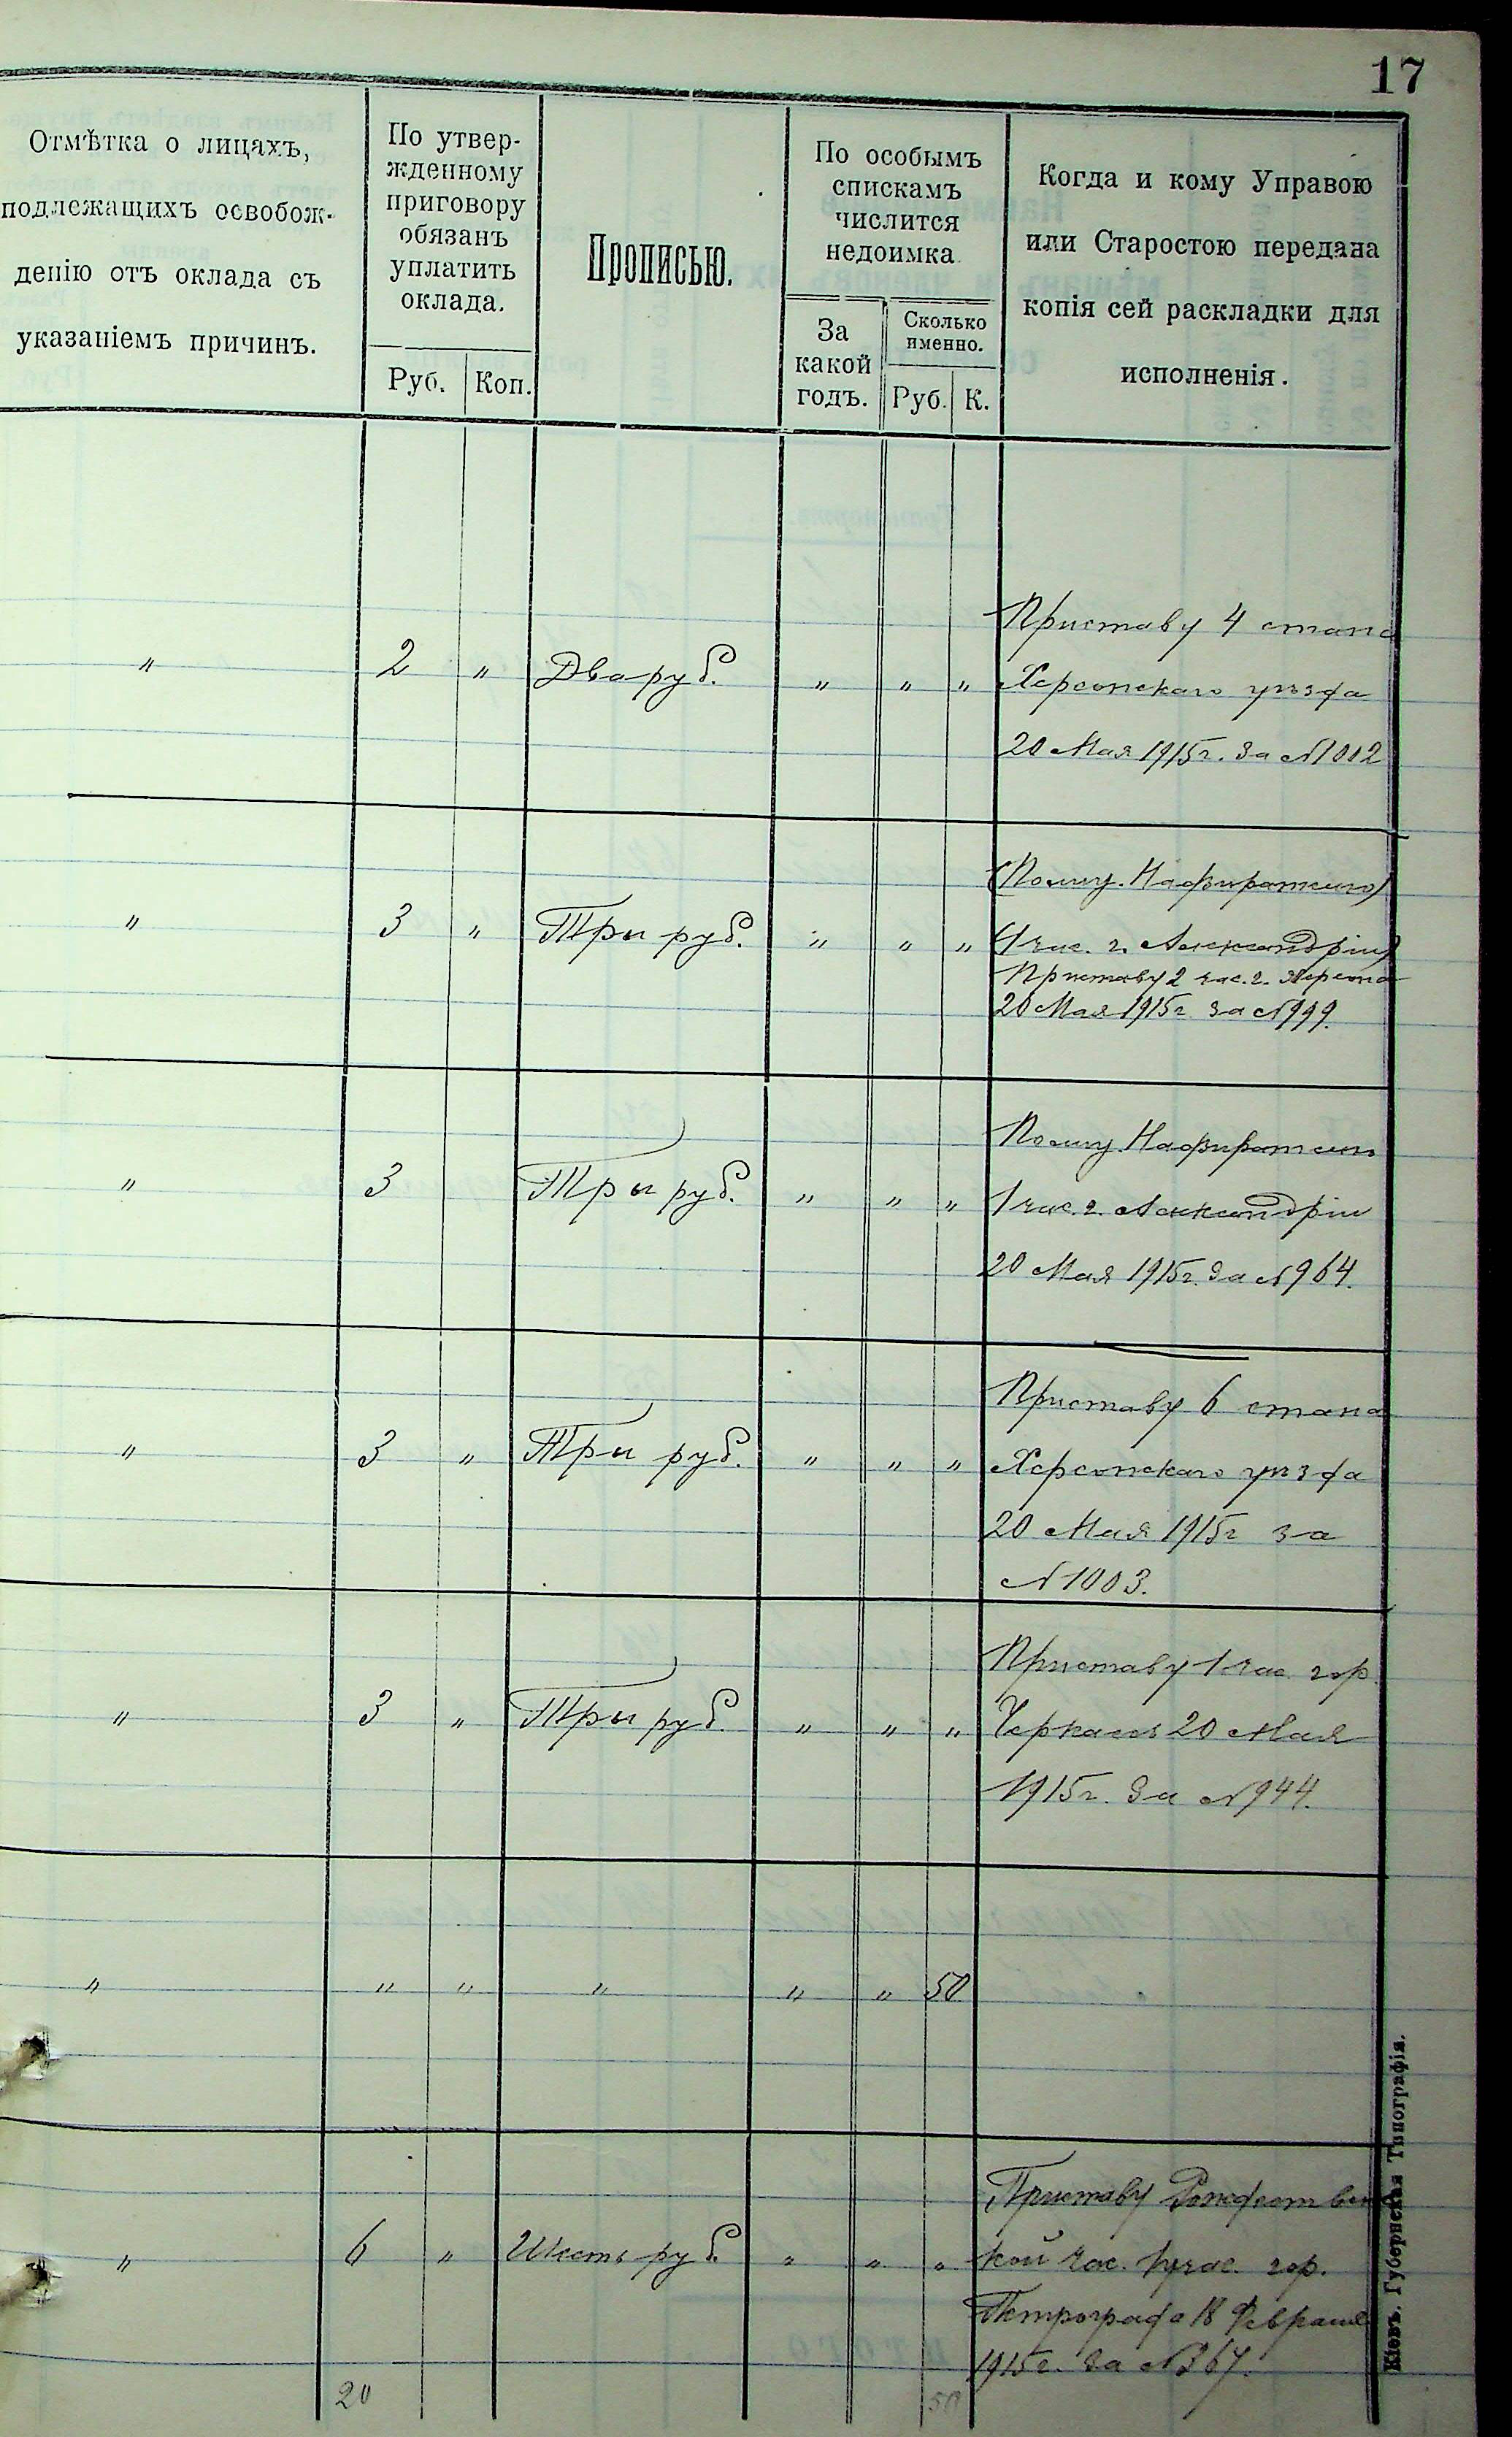 17
Отмѣтка о лицахъ,
подлежащихъ освобож-
денію отъ оклада съ
указаніемъ причинъ.
По утвер-
жденному
приговору
обязанъ
уплатить
оклада.
Руб. Коп.
Прописью.
По особымъ
спискамъ
числится
недоимка
За
какой
годъ.
Сколько
именно.
Руб. К.
Когда и кому Управою
или Старостою передана
копія сей раскладки для
исполненія.
Приставу 4 стана
" 2 " Два руб. " " " Херсонскаго уѣзда
20 Мая 1915 г. За № 1002
(Полиц. Надзирателю
" 3 " Три руб. " " " 1 час. г. Александріи)
Приставу 2 час. г. Херсона
20 Мая 1915 г. за № 999.
Полиц. Надзирателю
" 3 Три руб. " " " 1 час. г. Александріи
20 Мая 1915 г. За № 964.
Приставу 6 стана
" 3 " Три руб. " " " Херсонскаго уѣзда
20 Мая 1915 г за
№ 1003.
Приставу 1 час. гор.
" 3 " Три руб. " " " Черкассъ 20 Мая
1915 г. За № 944.
" " " " " " 50
Приставу Рождествен
" 6 " Шесть руб. " " " кой час. 1 учас. гор.
Петрограда 18 Февраля
1915 г. За № 367.
20 50
Кіевъ. Губернская Типографія.